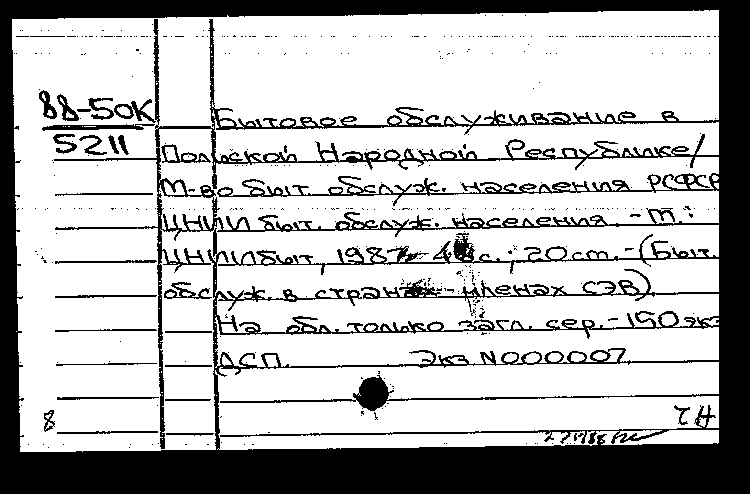 88-50К
5211
Бытовое обслуживание в
Польской Народной Республике/
М-во быт. обслуж. населения РСФСР
ЦНИИ быт. обслуж. населения. - М.:
ЦНИИбыт, 1987. - с.; 20 см. - (Быт.
обслуж. в странах - членах СЭВ).
На обл. только загл. сер. - 150 экз
ДСП. Экз N000007
8